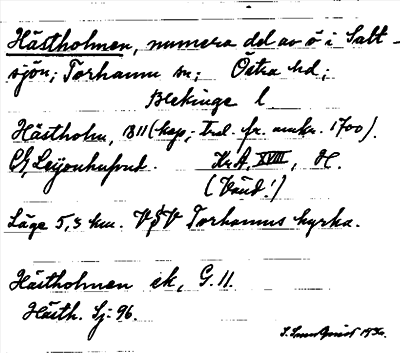 Hästholmen, numera del av ö i Salt-
sjön; Torhamn sn; Östra hd;
Blekinge l
Hästholm, B11 (kop; trol. fr. omkr. 1700).
G, Leijonhufvud. KrA, XVIII, H.
(Vänd!)
Läge 5,3 km. VSV Torhamns kyrka.
Hästholmen ek, G. 11.
Hästh. Sj: 96.